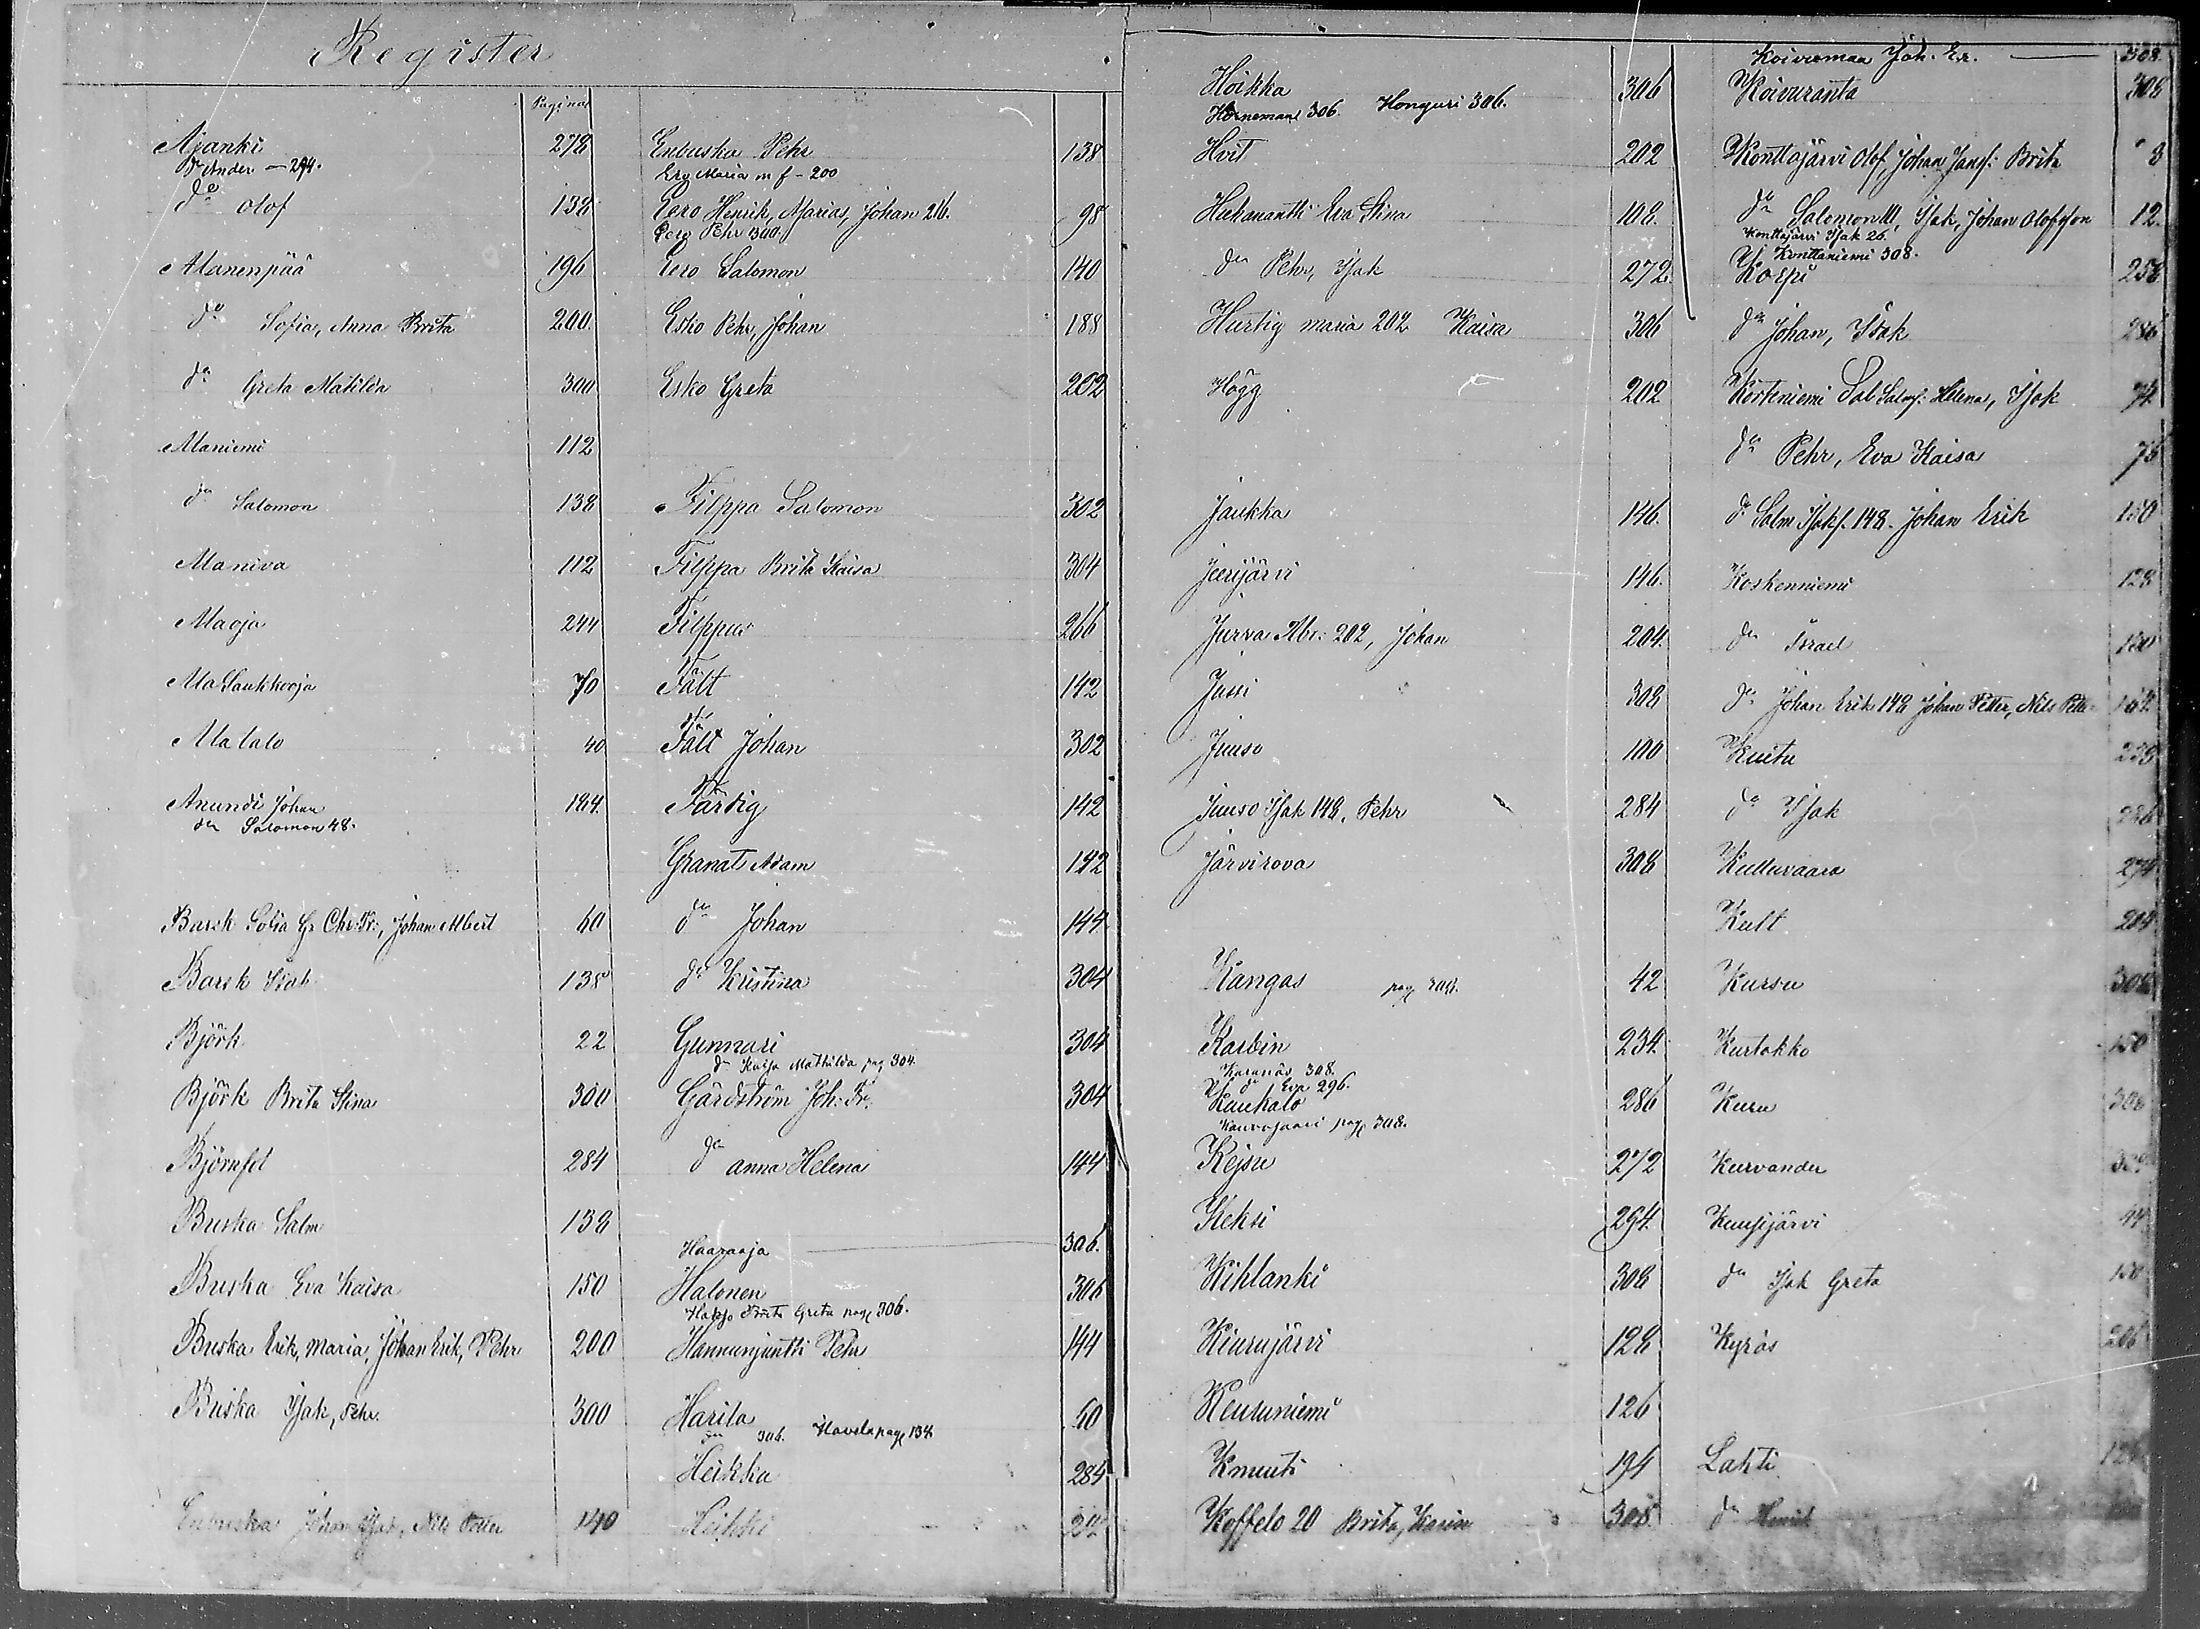 Register
Pagina
Ajanki 278
do Ander — 294.
do Olof 138
Alanenpää 196
do Sofia, Anna Brita 200.
do Greta Matilda 300
Alaniemi 112
do Salomon 138
Alaniva 112
Alaoja 244
Ala Saukkooja 70
Alatalo 40
Anundi Johan 184.
do Salomon 48.
Barsk Sofia Gr Chr. Fr:, Johan Albert 60
Barsk Isak 138
Björk 22
Björk Brita Stina 300
Björnfot 284
Buska Salm 138
Buska Eva Kaisa 150
Buska Erik, Maria, Johan Erik, Pehr 200
Buska Isak, Pehr 300
Enbuska Johan Isak, Nils Petter 140
Enbuska Pehr 138
Ero Maria m f - 200
Eero Henrik, Marias, Johan 216. 98
Eero Pehr 300.
Eero Salomon 140
Esko Pehr, Johan 188
Esko Greta 202
Filppa Salomon 302
Filppa Brita Kaisa 304
Filppus 266
Fält 142
Fält Johan 302
Färdig 142
Granat Adam 142
do Johan 144
do Kristina 304
Gunnari 304
do Kaisa Mathilda pag 304
Gårdström Joh: Fr: 304
do Anna Helena 144
Haaraoja — 306.
Halonen 306
Brita Greta pag 306.
Hannunjuntti Pehr 144
Harila 60
do 306. Havela pag 134
Heikka 284
Heikki
Hoikka 306
Hornemans 306. Honguri 306.
Hvit 202
Hukanantti Eva Stina 108.
do Pehr, Isak 272.
Hurtig Maria 202 Kaisa 306
Högg 202
Jaukka 146.
Jeerijärvi 146.
Jurva Abr: 202, Johan 204.
Jussi 308
Juuso 100
Juuso Isak 148, Pehr 284
Järvirova 308
Kangas pag 308. 42
Karbin 234.
308.
do Eva 296.
Kauhalo 286
pag. 308.
Kejsu 272
Keksi 294.
Kihlanki 308
Kiurujärvi 128
Keutuniemi 126
Knuuti 194
Koffelo 20 Brita, Karin 308.
Koivumaa Joh. Er. — 308.
Koivuranta 308
Konttajärvi Olof, Johan Jansf: Brita 8
do Salomon III, Isak, Johan Olofsson 12.
Konttajärvi Isak 26.
Konttaniemi 308.
Korpi 258
do Johan, Isak 286
Kortniemi Sal Salmf: Helena, Isak 74
do Pehr, Eva Kaisa 76
do Salm Isakf. 148. Johan Erik 150
Koskenniemi 128
do Israel 150
do Johan Erik 148 Johan Petter, Nils Petter
Kuitu
do Isak
Kulluvaara 274
Kult 204
Kursu 308
Kurtakko 150
Kuru 308
Kurvander
Kuusijärvi 44
do Isak Greta 150
Kyrös 206
Lahti
do Henrik